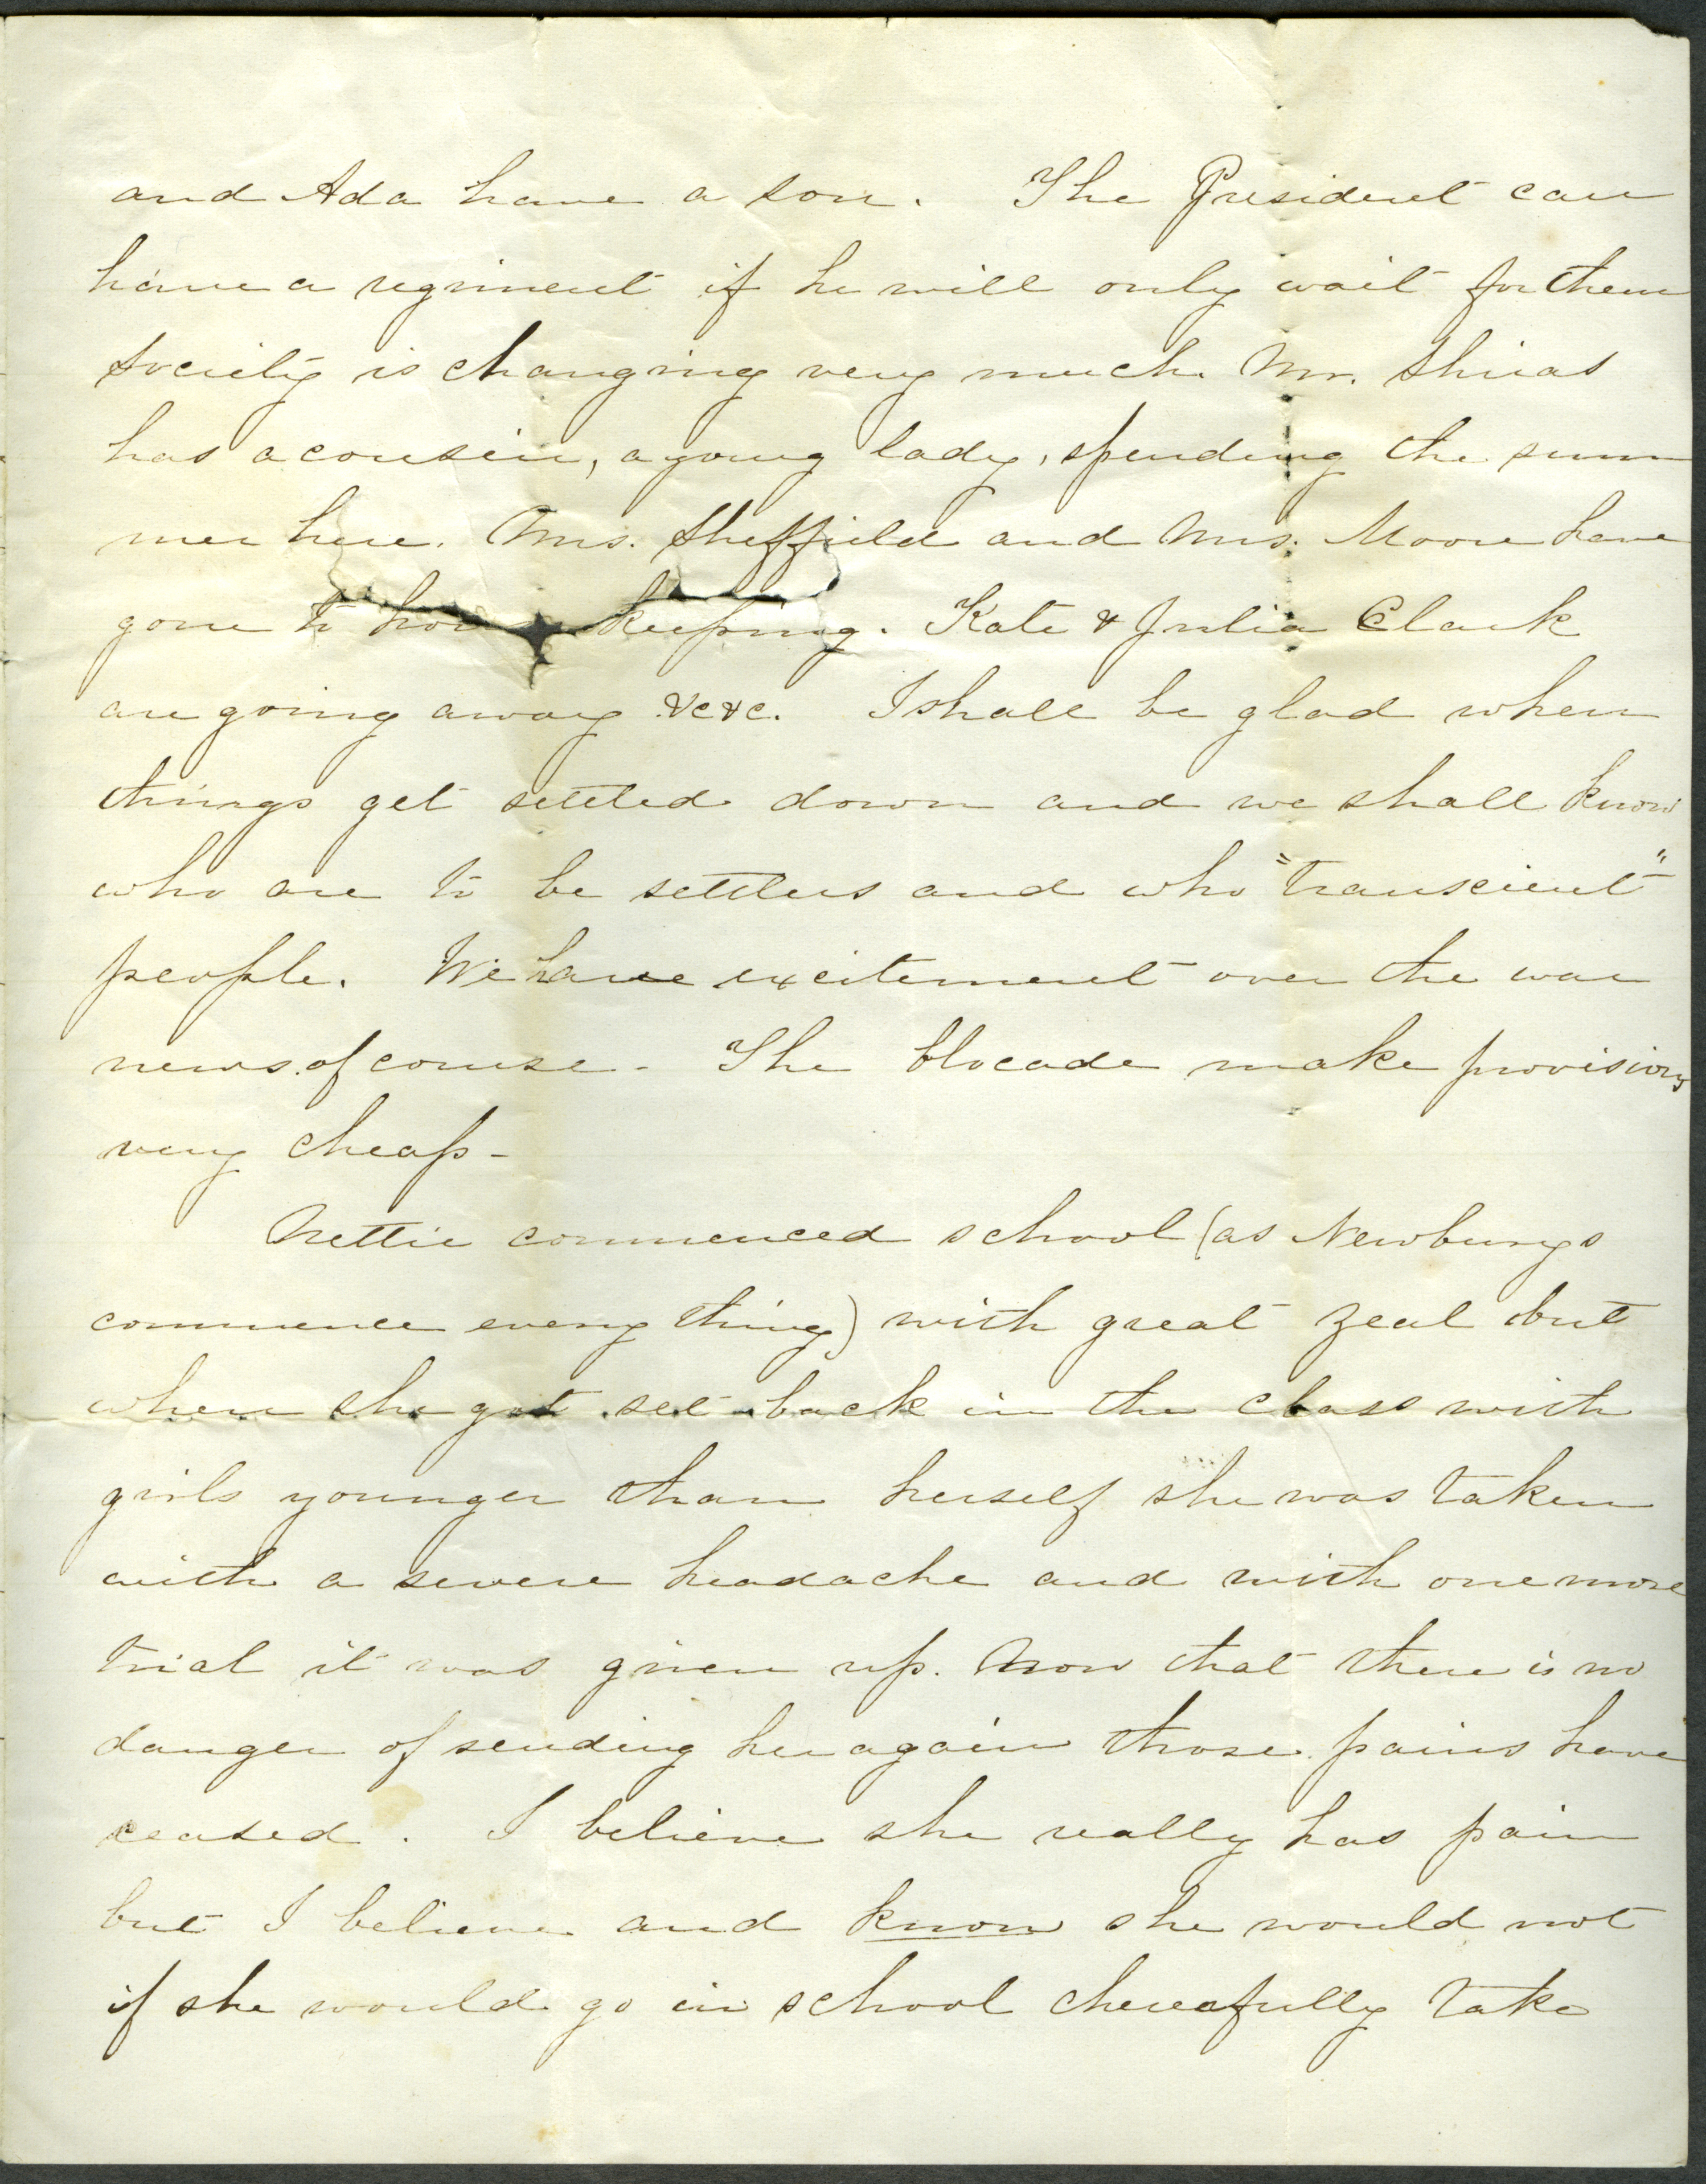 and Ada have a son. The President can
have a regiment if he will only wait for them
Society is changing very much. Mr. Shiras
has a cousin, a young lady, spending the sum
mer here. Mrs. Sheffield and Mrs. Moore have
gone to hou keeping. Kate & Julia Clark
are going away &c&c. I shall be glad when
things get settled down and we shall know
who are to be settlers and who "transcient"
people. We have excitement over the war
news of course - The blocade make provisions
very cheap -
Nettie commenced school (as Newburys
commence every thing) with great zeal but
when she got set back in the class with
girls younger than herself she was taken
with a severe headache and with one more
trial it was given up. Now that there is no
danger of sending her again those pains have
ceased. I believe she really has pain
but I believe and know she would not
if she would go in school cheerfully take